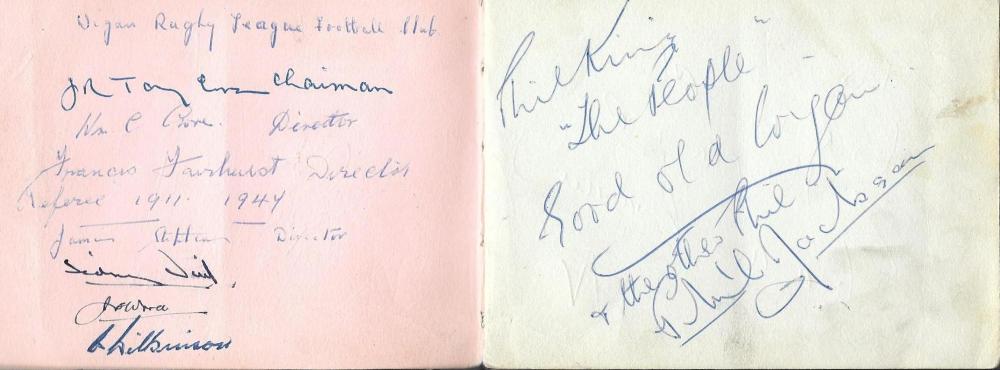 Wigan Rugby League Football Club
Chairman
Wm C Director
Francis Fairhurst Director
Referee 1911. 1944
James Director
Sidney
A Wilkinson
Phil King
"The People"
Good old Wigan
& the other Phil
Phil Jackson